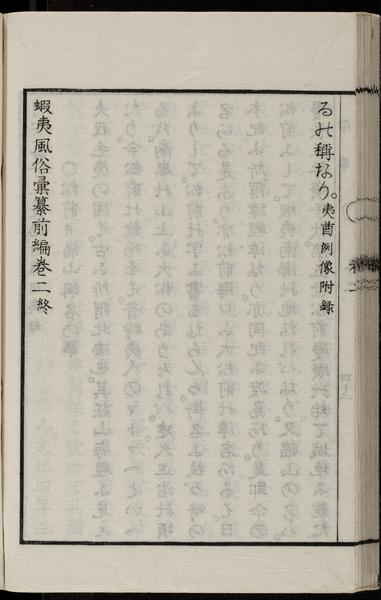 る的稱なり。夷酋列像附録
蝦夷風俗彙纂前編卷二終